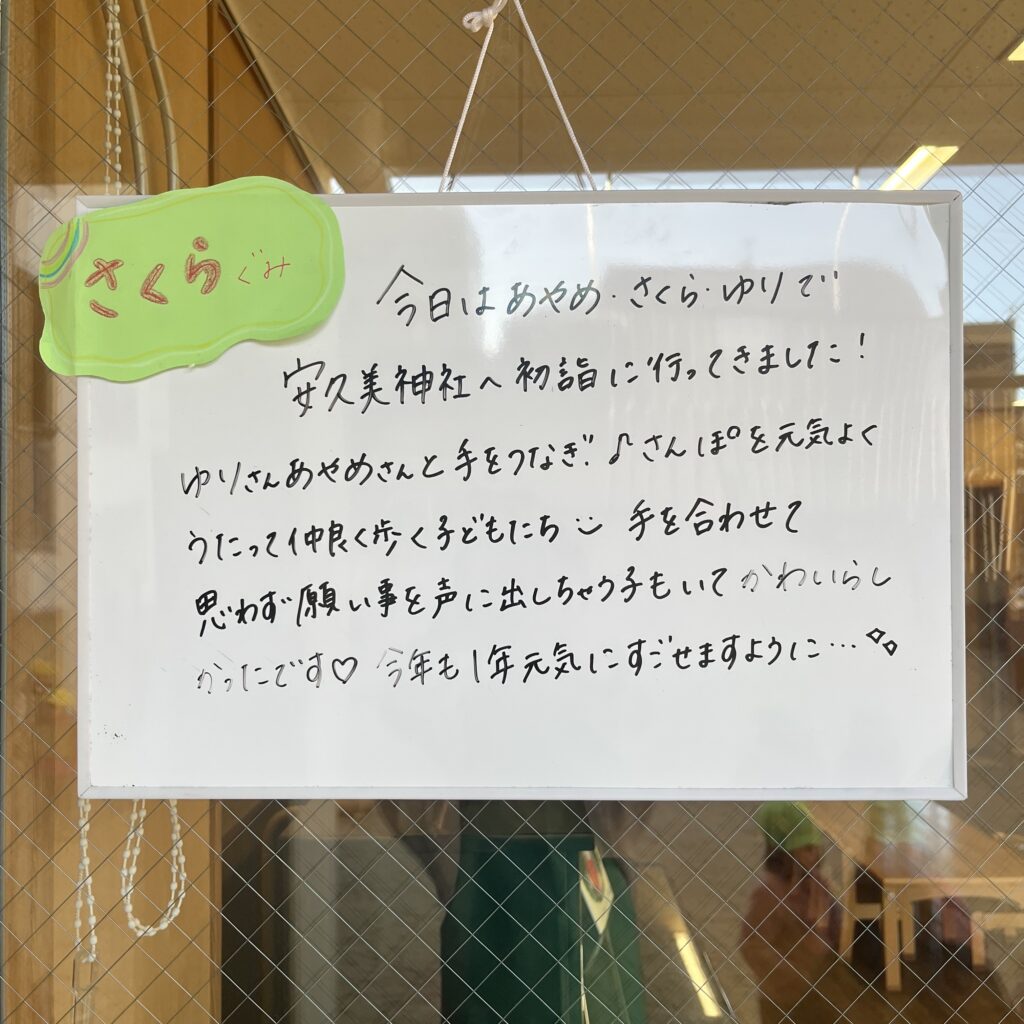 さくらぐみ
今日はあやめ・さくら・ゆりで
安久美神社へ初詣に行ってきました！
ゆりさんあやめさんと手をつなぎ！♪さんぽを元気よく
うたって仲良く歩く子どもたち 手を合わせて
思わず願い事を声に出しちゃう子もいてかわいらし
かったです♡ 今年も1年元気にすごせますように…